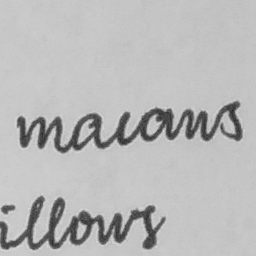 macaws
illows